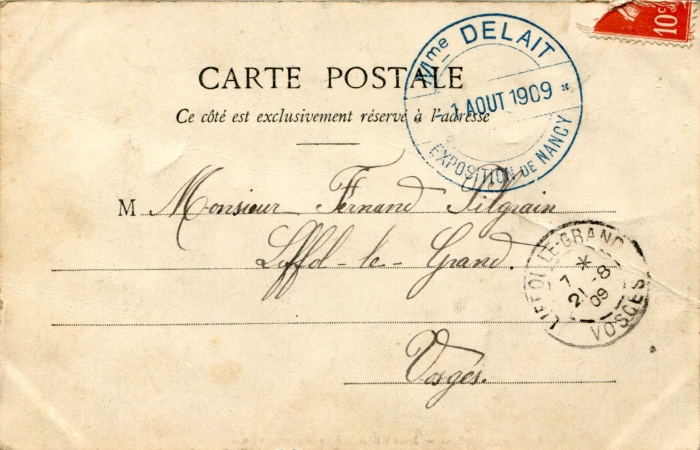 10c
Mme DELAIT
- 1 AOUT 1909 *
EXPOSITION DE NANCY
CARTE POSTALE
Ce côté est exclusivement réservé à l'adresse
M Monsieur Fernand Pilgrain
Liffol-le-Grand.
Vosges.
LIFFOL-LE-GRAND
7 *
21-8
09
VOSGES